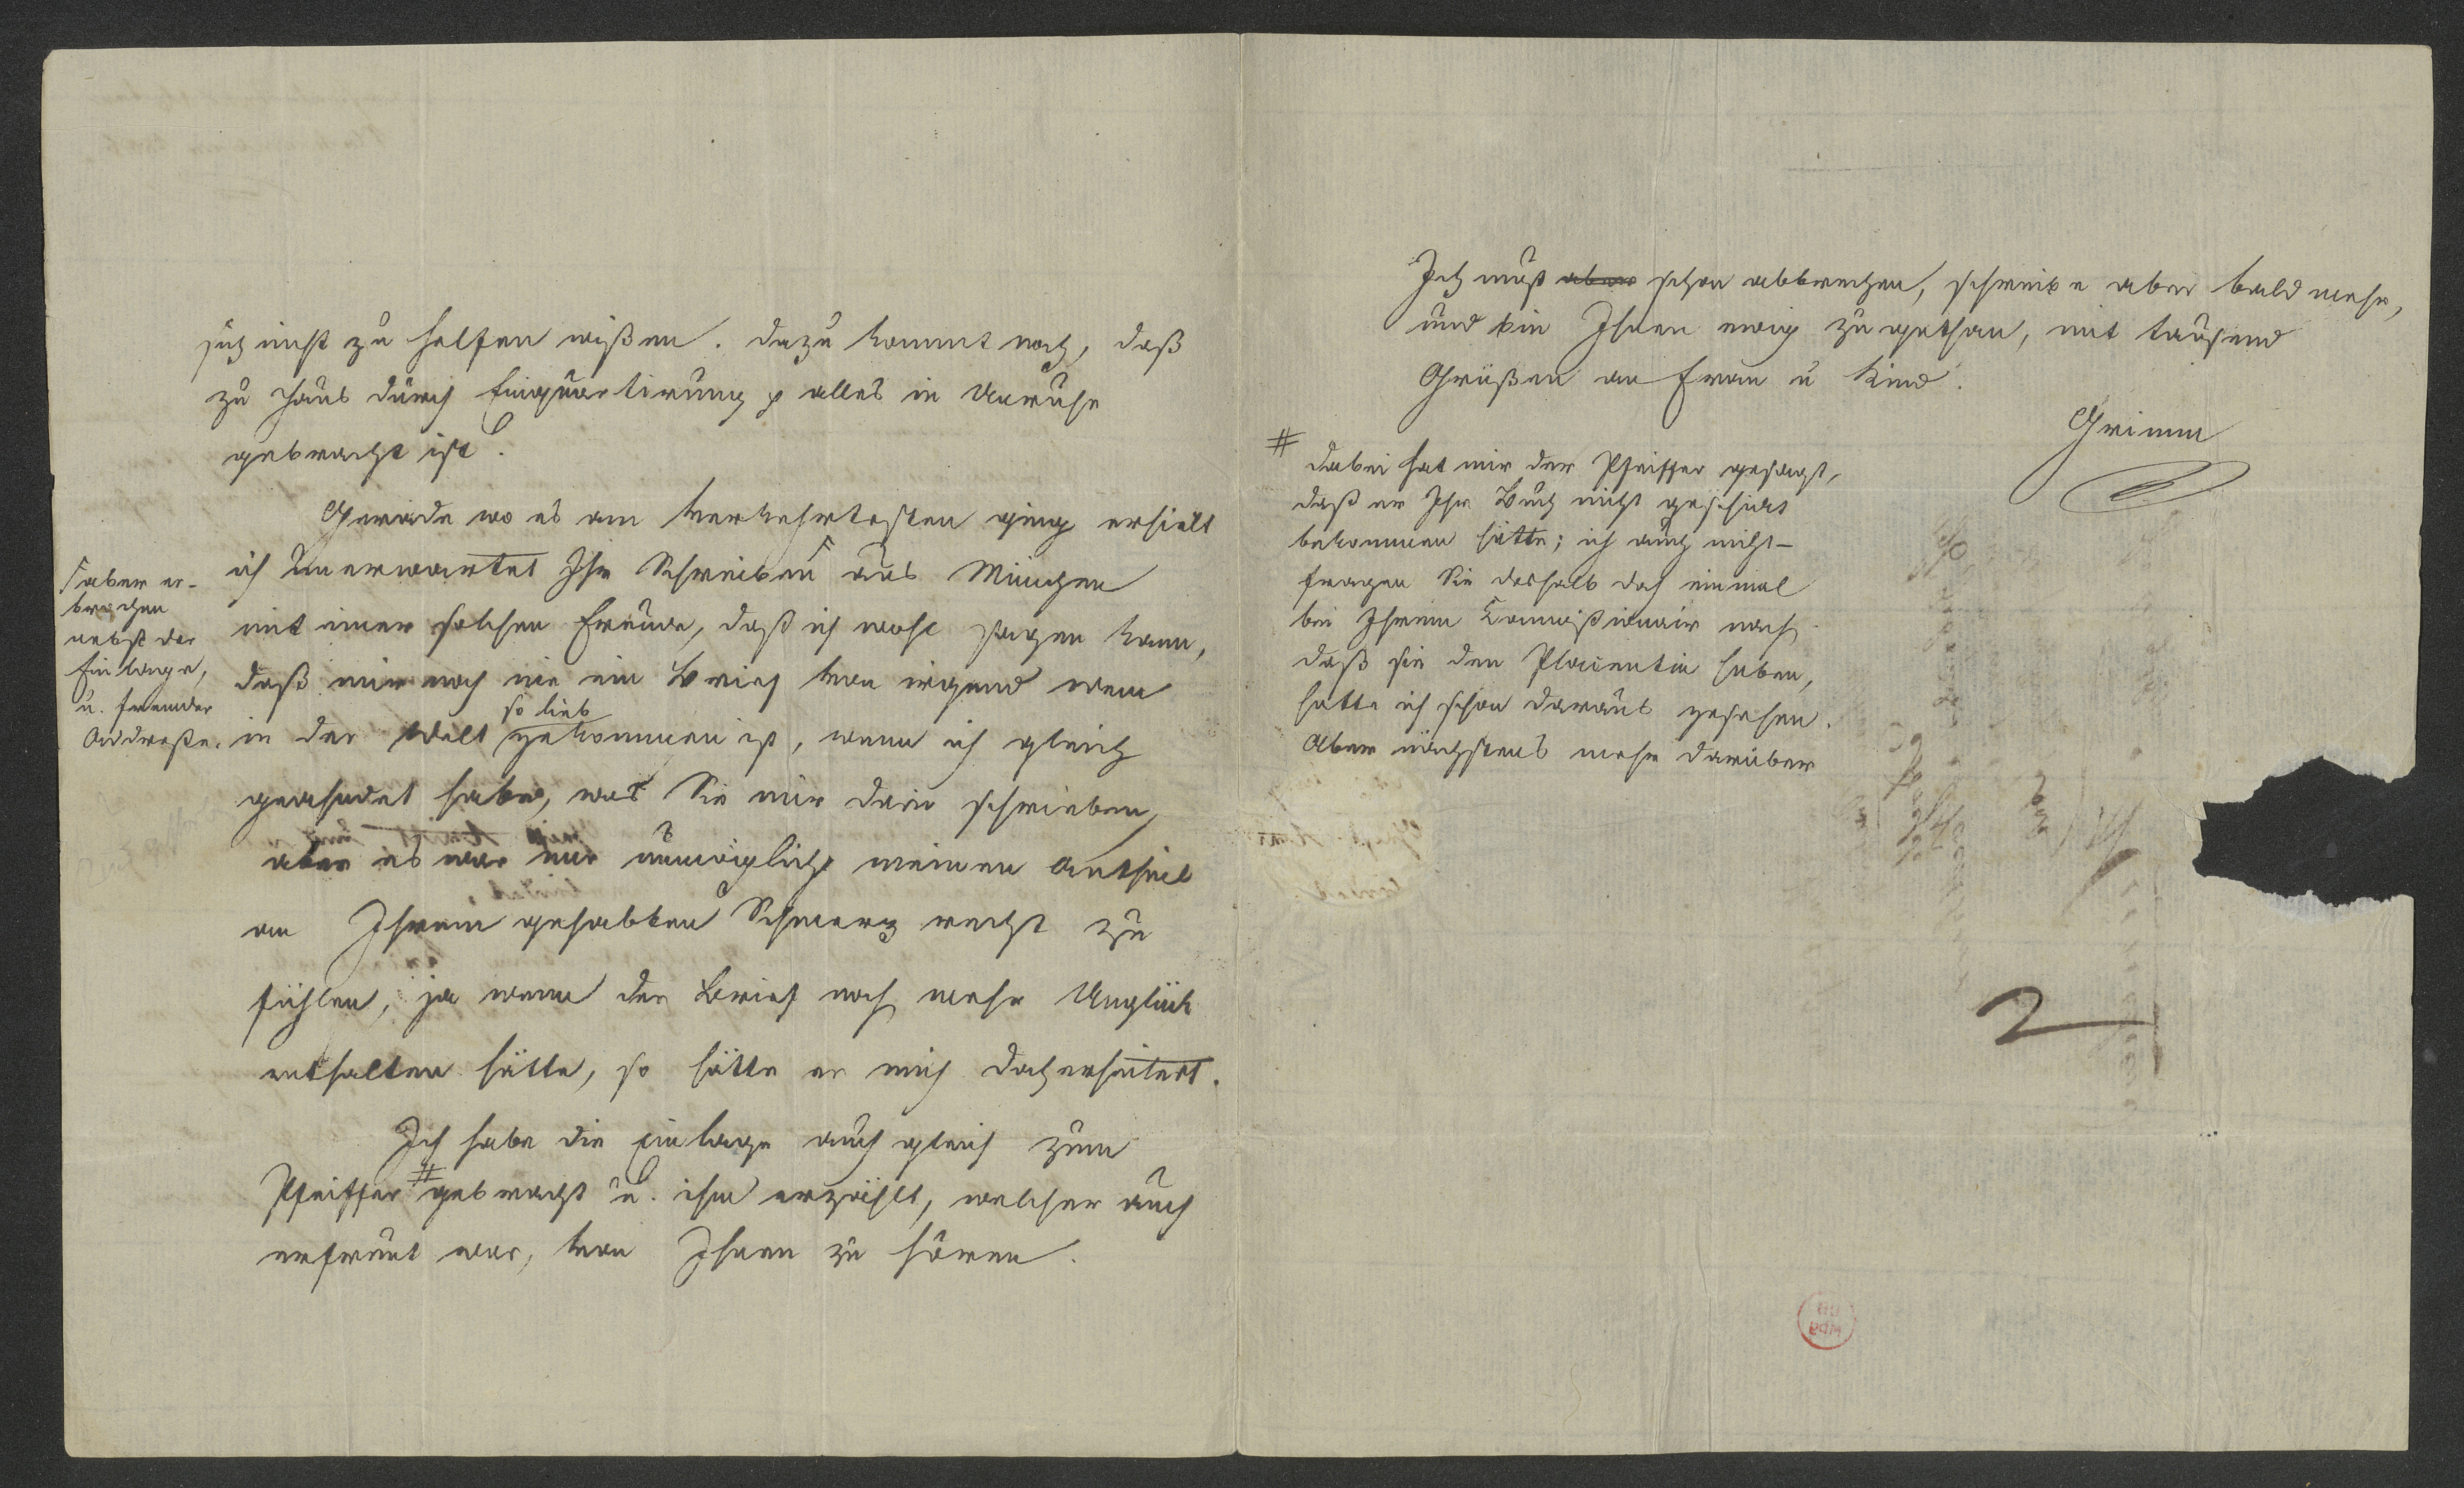 sich nicht zu helfen wißen. dazu kommt noch, daß
zu Haus durch Einquartirung p alles in Unruhe
gebracht ist.
Gerade wo es am verkehrtesten ging erhielt
ich unerwartet Ihr Schreiben ⌈ aus München
mit einer solchen Freude, daß ich wohl sagen kann,
daß mir noch nie ein Brief von irgend wem
so lieb
in der Welt gekommen ist, wenn ich gleich
geahndet habe, was Sie mir darin schrieben,
aber es war mir unmöglich meinen Antheil
an Ihrem gehabten Schmerz recht zu
fühlen, ja wenn der Brief noch mehr Unglück
enthalten hätte, so hätte er mich doch erheitert.
Ich habe die Einlage auch gleich zum
Pfeiffer # gebracht u. ihm erzählt, welcher auch
erfreut war, von Ihnen zu hören.
⌈ aber er-
brochen
nebst der
Einlage,
u. fremder
Addreße.
Ich muß aber schon abbrechen, schreibe aber bald mehr,
und bin Ihnen ewig zugethan, mit tausend
Grüßen an Frau u Kind.
Grimm
# dabei hat mir der Pfeiffer gesagt,
daß er Ihr Buch nicht geschickt
bekommen hätte; ich auch nicht –
fragen Sie deshalb doch einmal
bei Ihrem Commißionair nach
daß sie den Placentin haben,
hatte ich schon daraus gesehen.
Aber nächstens mehr darüber
2